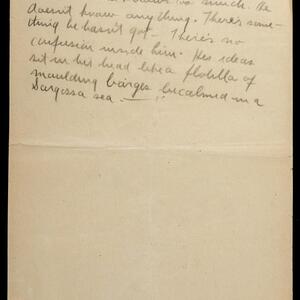 so much. He
doesn't know anything. There's some-
thing he hasn't got – There's no
confusion inside him. His ideas
sit in his head like a flotilla of
moulding barges becalmed in a
Sargossa sea. —